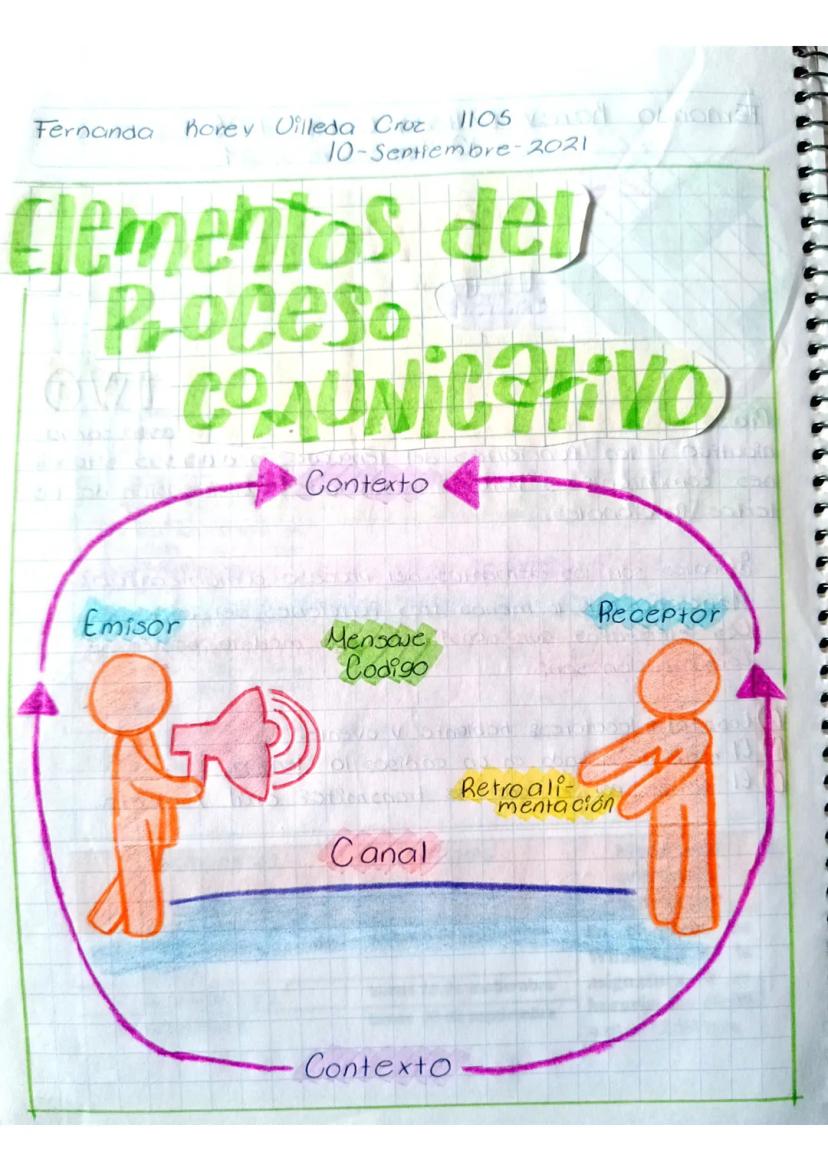 Fernanda Korey Villeda Cruz 1105
10-Septiembre-2021
Elementos del
Proceso
comunicativo
Contexto
Emisor
Receptor
Mensaje
Codigo
Retroali-
mentación
Canal
Contexto